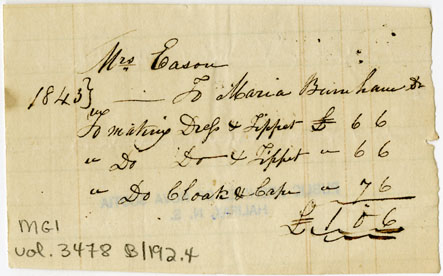 Mrs Eason
1843} To Maria Burnham Dr
To making Dress & Tippet £ 6 6
" Do Do & Tippet " 6 6
" Do Cloak & Cape " 7 6
£ 1 0 6
MG1
vol. 3478 B/192.4